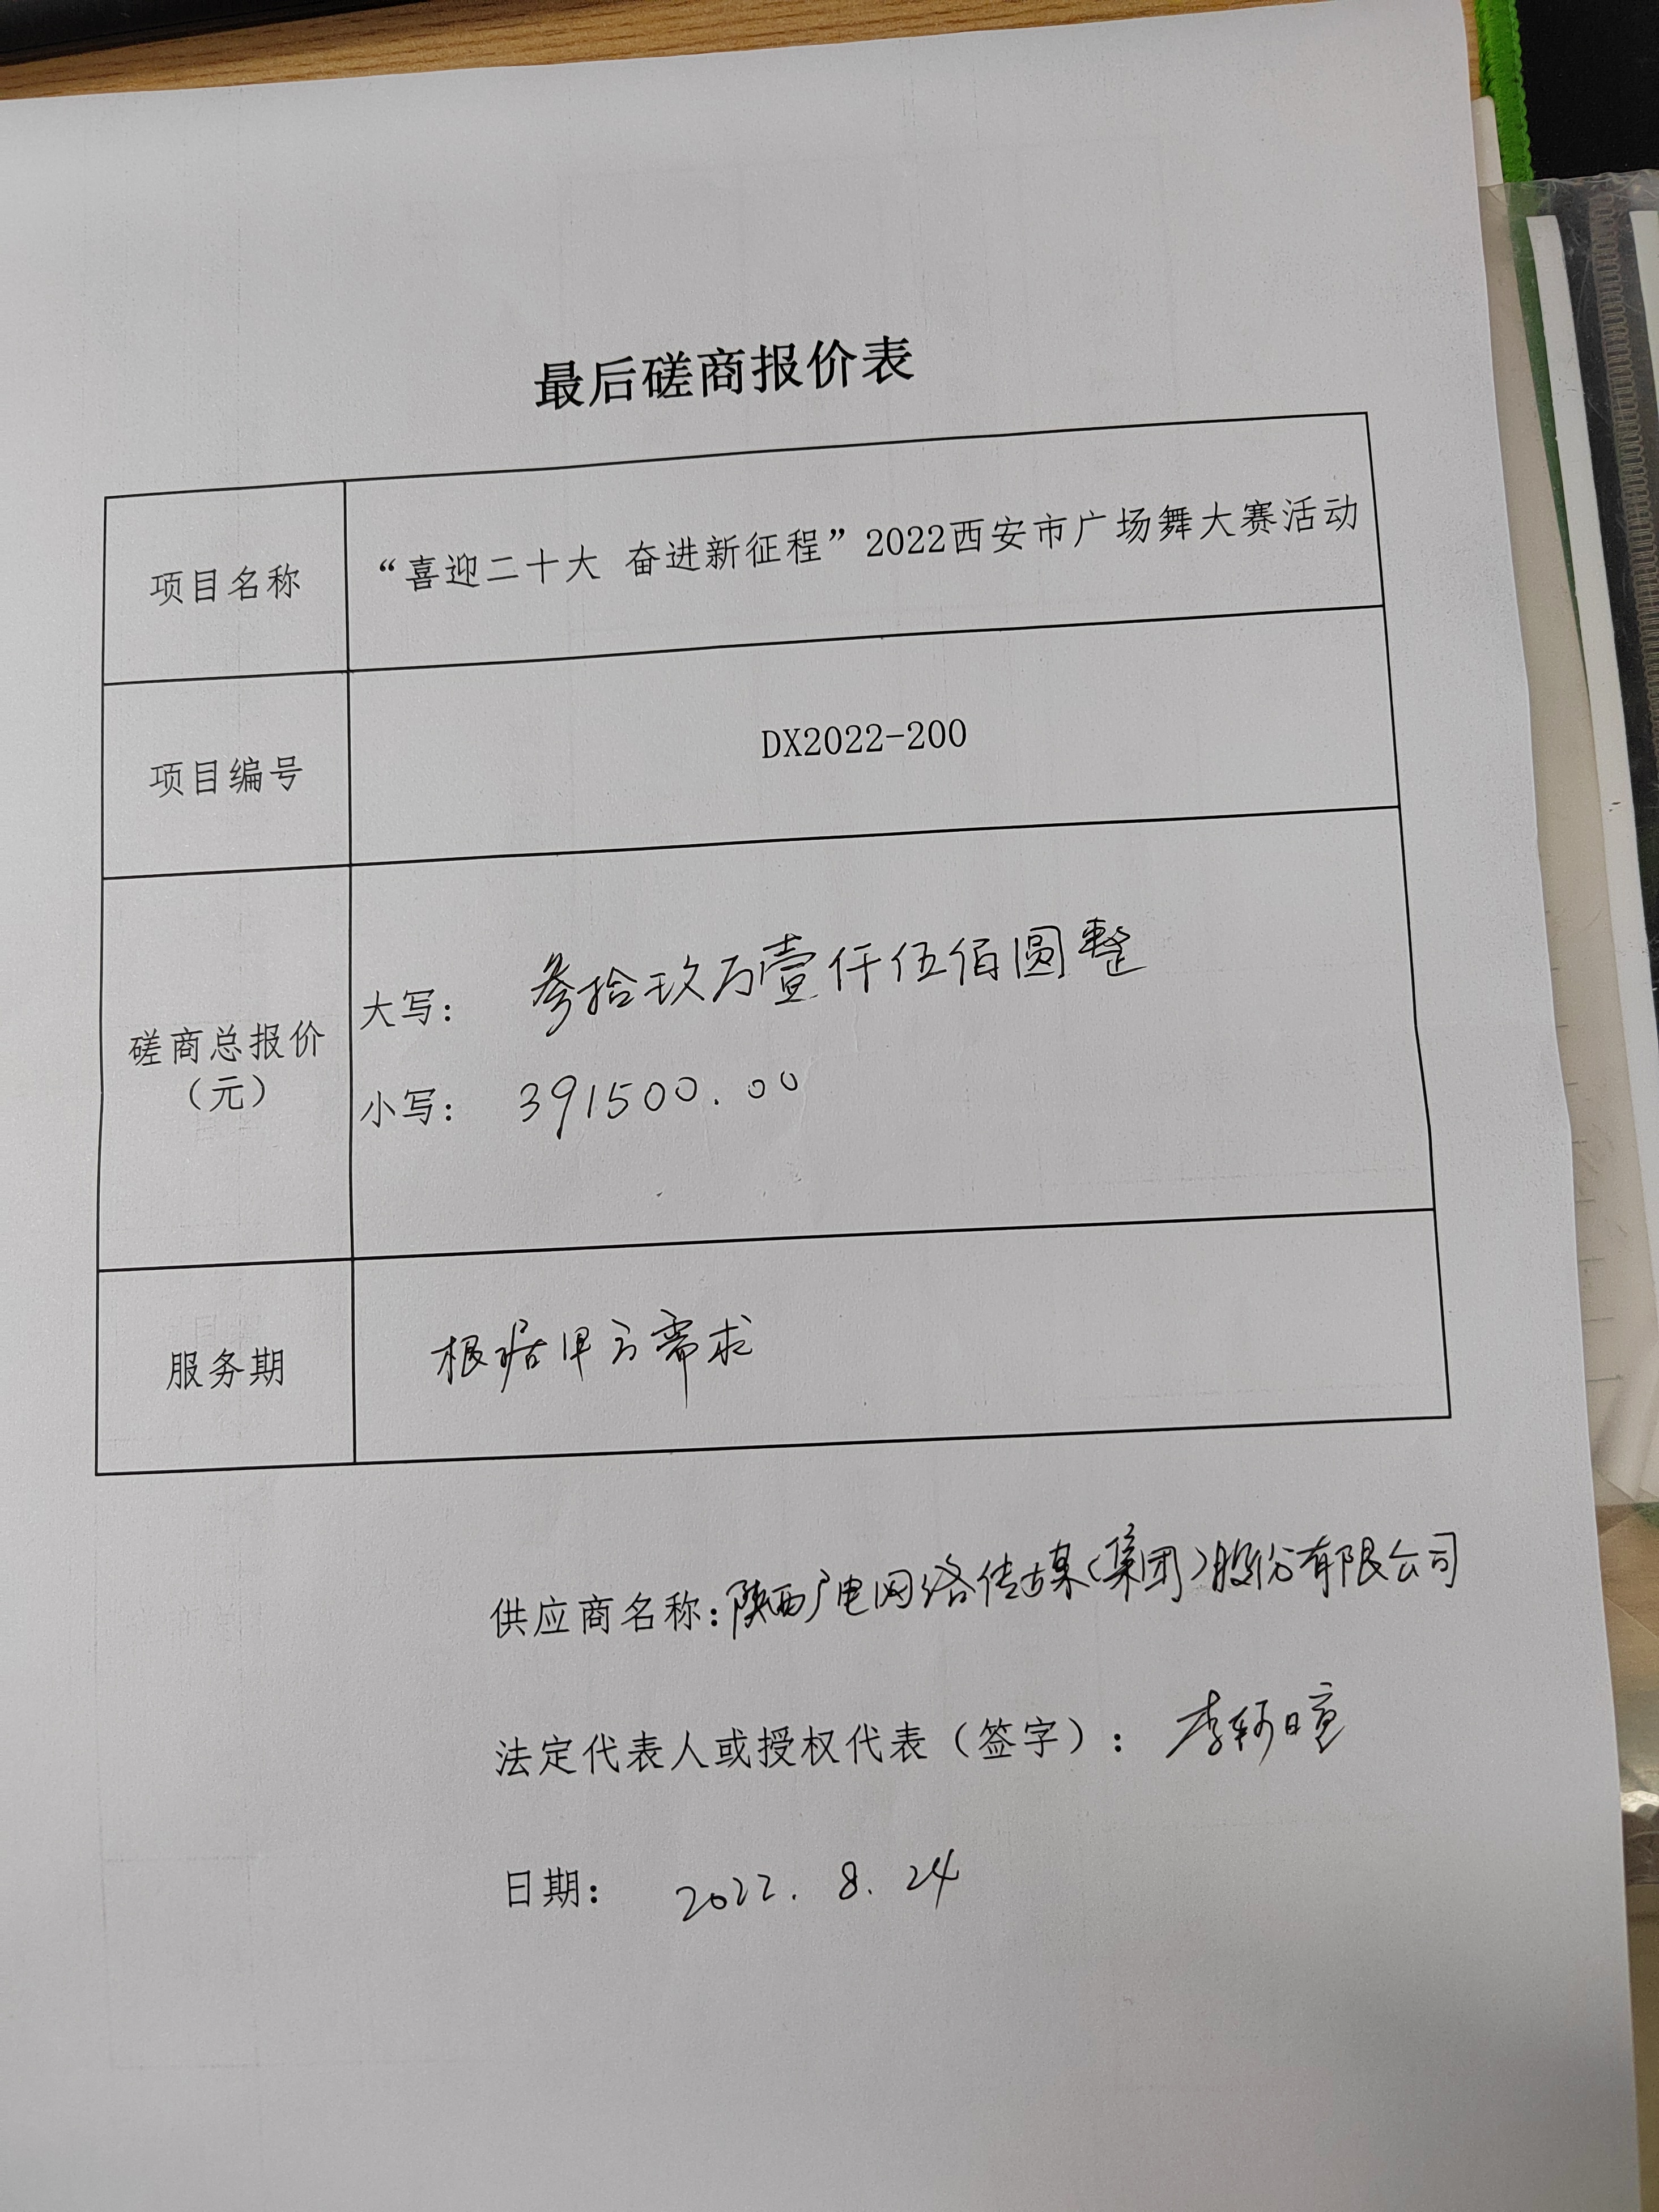 最后磋商报价表
项目名称
“喜迎二十大 奋进新征程”2022西安市广场舞大赛活动
项目编号
DX2022-200
磋商总报价
（元）
大写： 叁拾玖万壹仟伍佰圆整
小写： 391500.00
服务期
根据甲方需求
供应商名称：陕西广电网络传媒（集团）股份有限公司
法定代表人或授权代表（签字）： 李
日期： 2022.8.24